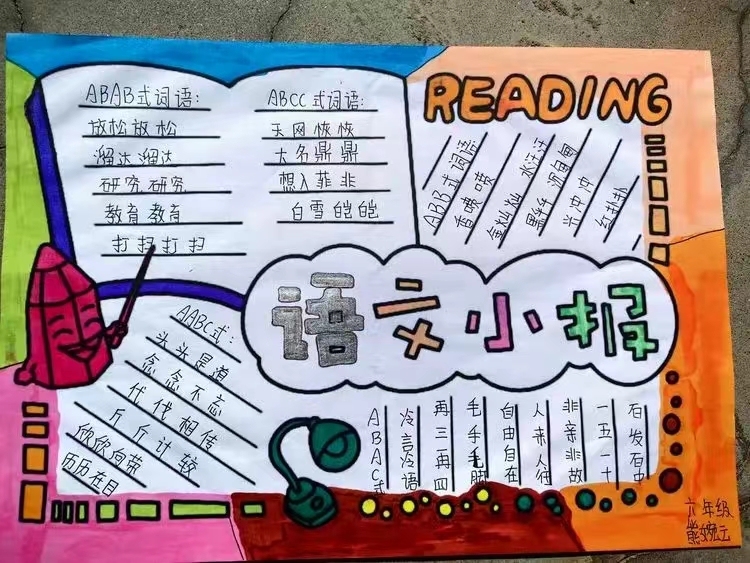 ABAB式词语:
放松放松
溜达溜达
研究研究
教育教育
打扫打扫
ABCC式词语:
天网恢恢
大名鼎鼎
想入菲非
白雪皑皑
READING
ABB式词语
香喷喷
金灿灿
水汪汪
沉甸甸
兴冲冲
红扑扑
语文小报
AABC式:
头头是道
念念不忘
代代相传
斤斤计较
欣欣向荣
历历在目
ABAC式
冷言冷语
再三再四
毛手毛脚
自由自在
人来人往
非亲非故
一五一十
百发百中
六年级
熊婉云